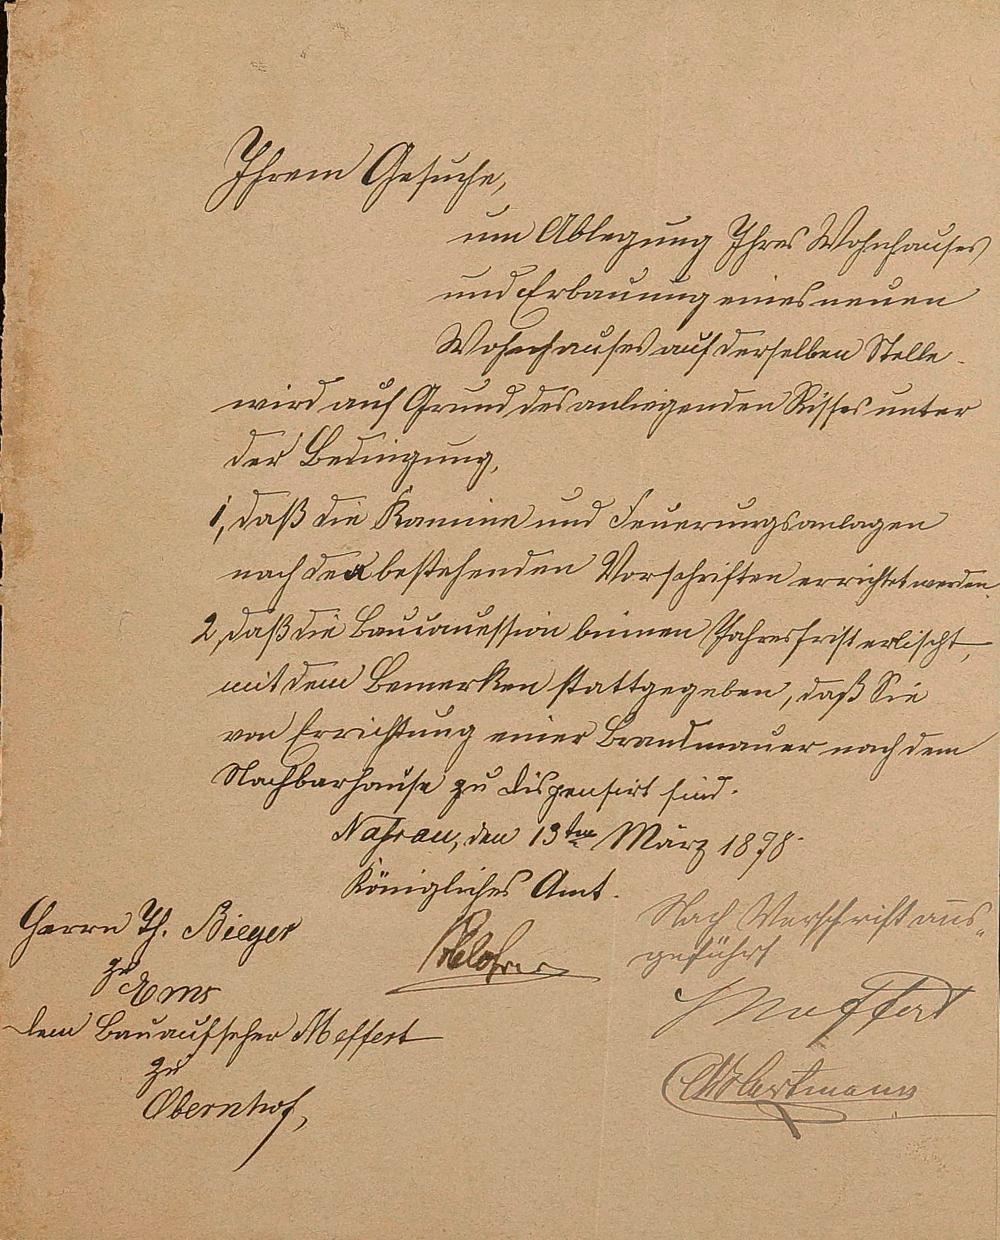 Ihrem Gesuche,
um Ablegung Ihres Wohnhauses
und Erbauung eines neuen
Wohnhauses auf derselben Stelle
wird auf Grund des anliegenden Risses unter
der Bedingung,
1, daß die Kamine und Feuerungsanlagen
nach den bestehenden Vorschriften errichtet werden.
2, daß die Bauconcession binnen Jahresfrist erlischt,
mit dem Bemerken stattgegeben, daß Sie
von Errichtung einer Brandmauer nach dem
Nachbarhause zu dispensirt sind.
Nassau, den 13ten März 1878.
Königliches Amt.
Herrn Th. Bieger
zu
Ems
dem Bauaufseher Meffert
zu
Obernhof,
Nach Vorschrift aus-
geführt
Meffert